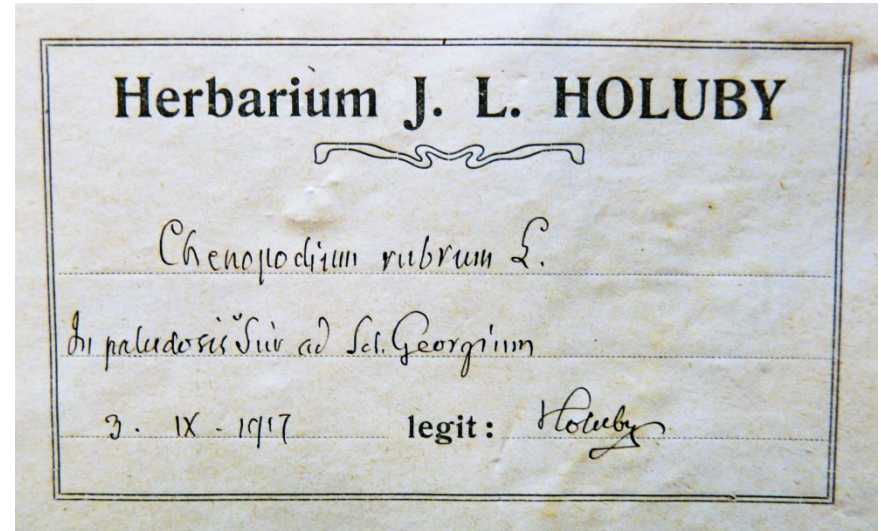 Herbarium J. L. HOLUBY
Chenopodium rubrum L.
In paludosis Šúr ad Sct. Georgium
3. IX. 1917 legit: Holuby